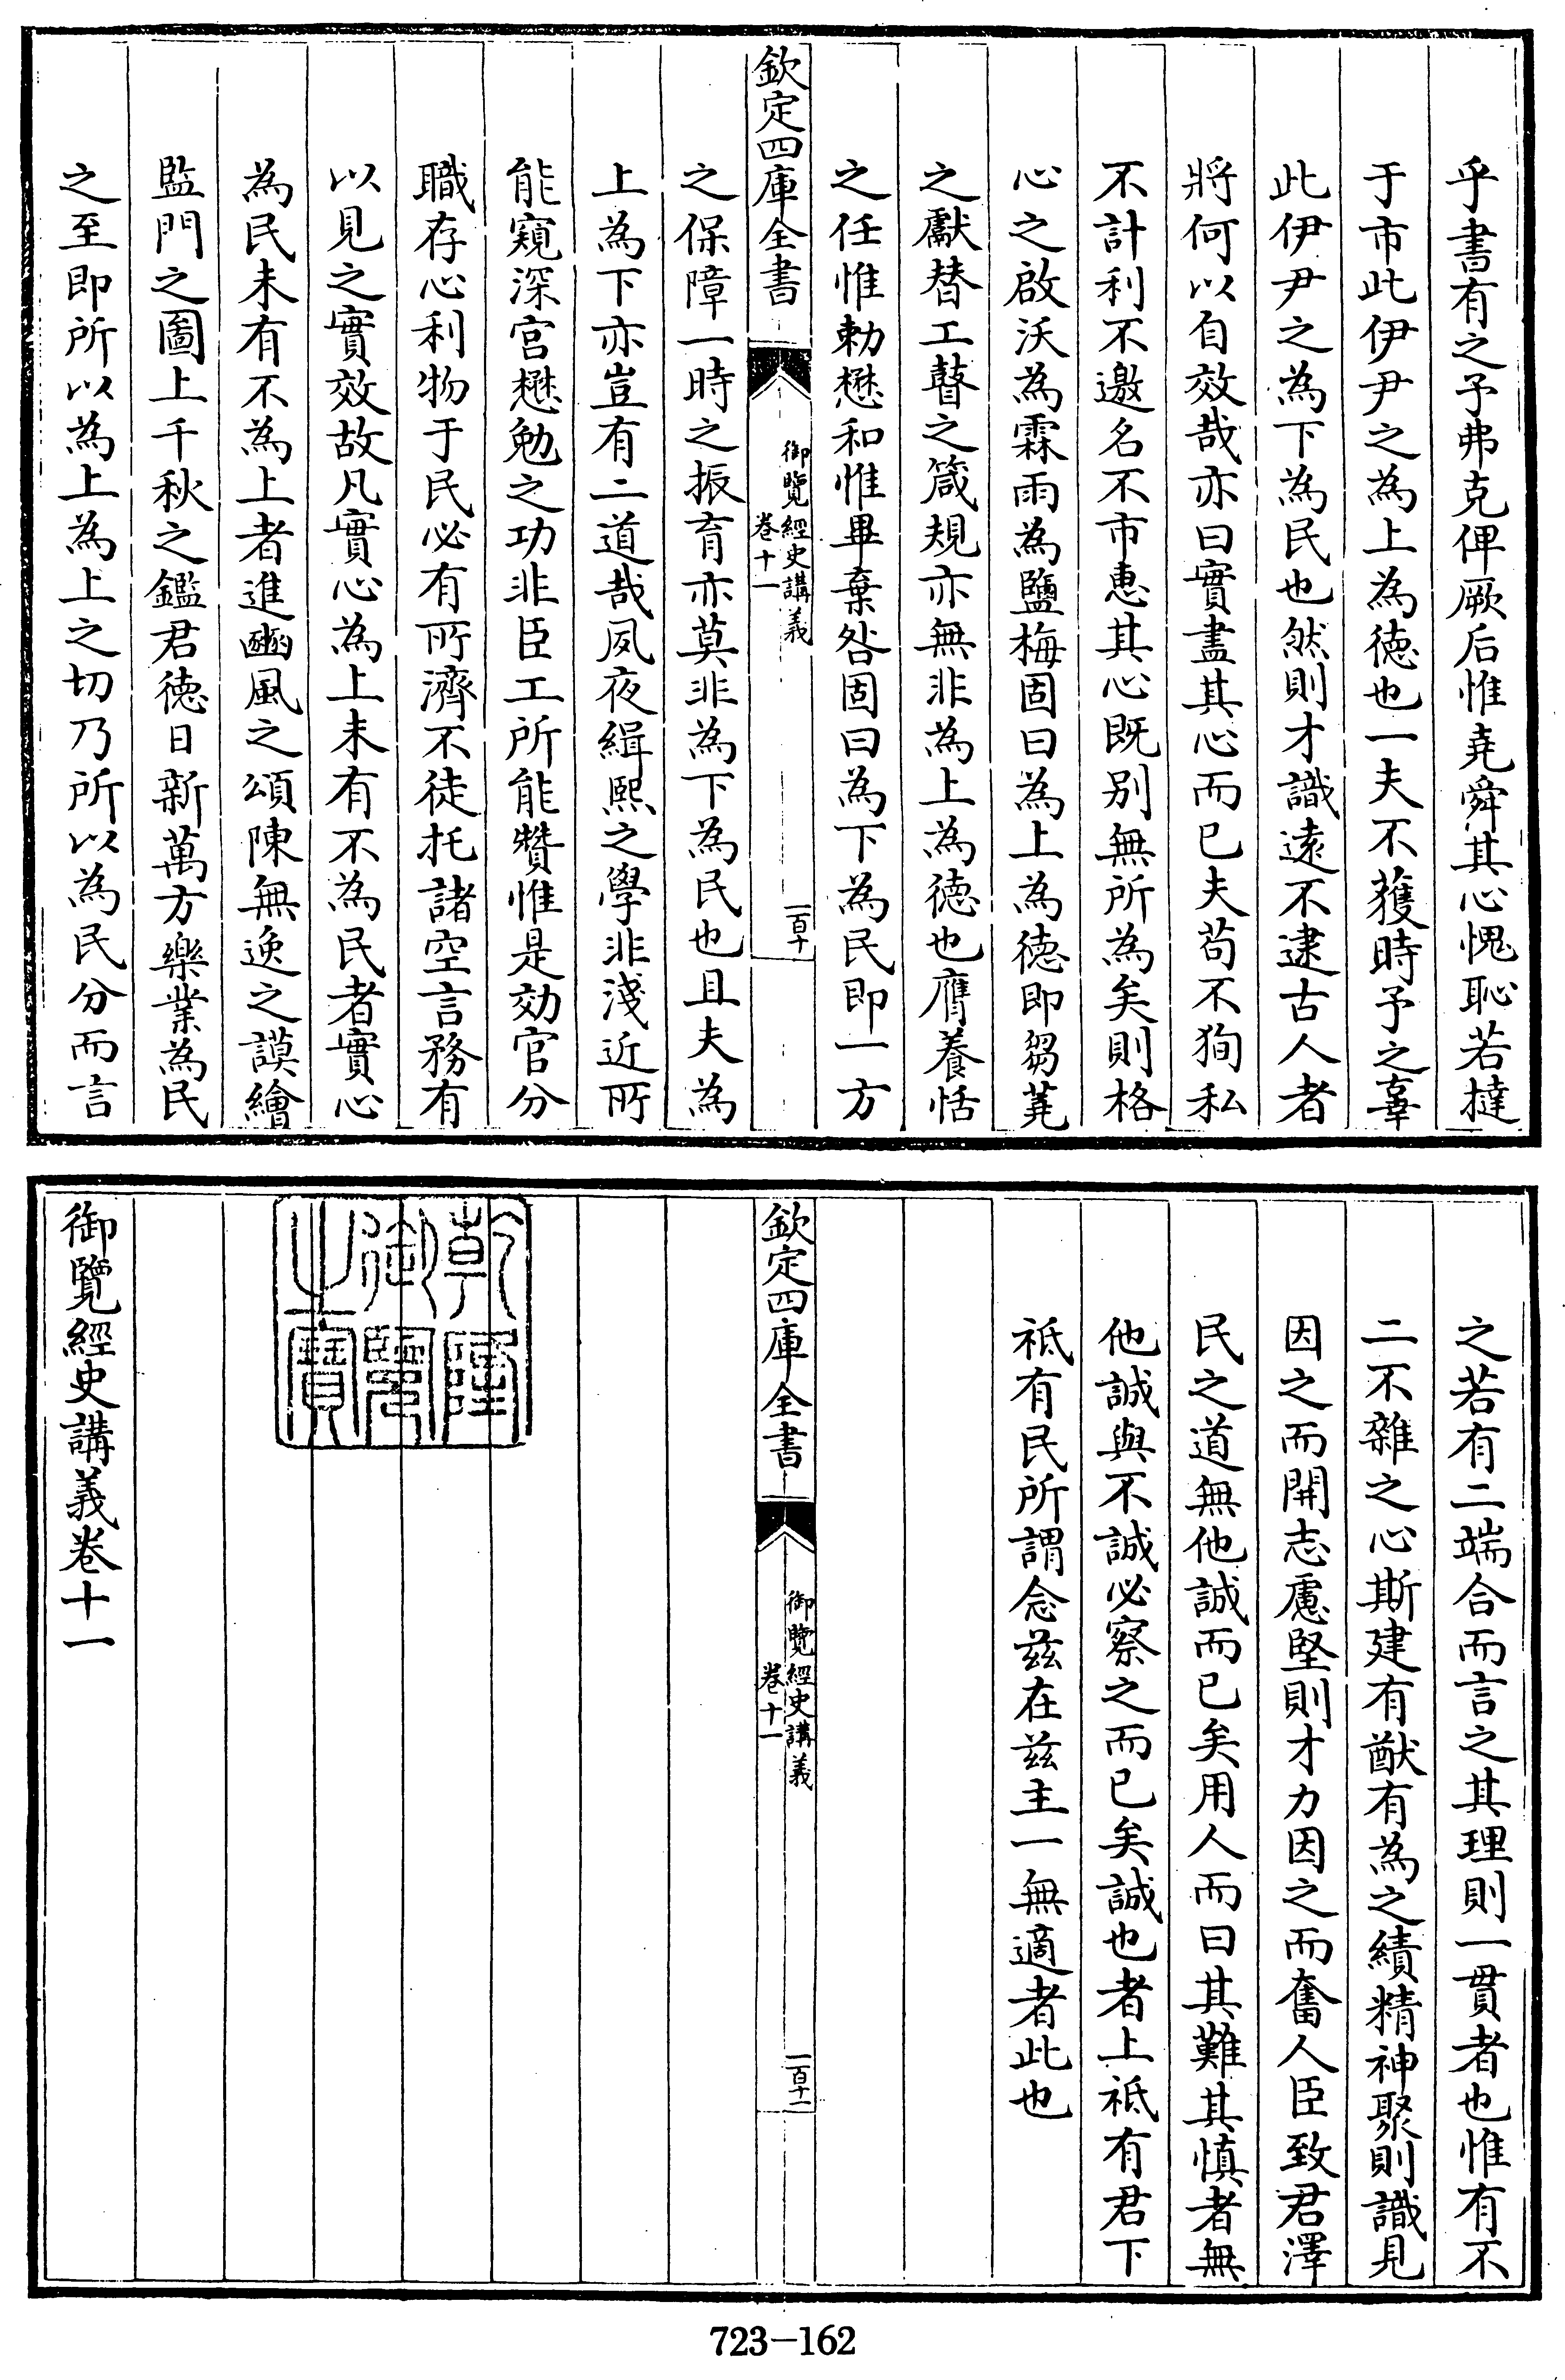 乎書有之予弗克俾厥后惟堯舜其心愧恥若撻
于市此伊尹之為上為德也一夫不獲時予之辜
此伊尹之為下為民也然則才識遠不逮古人者
將何以自效哉亦曰實盡其心而已夫茍不狥私
不計利不邀名不市惠其心既别無所為矣則格
心之啟沃為霖雨為鹽梅固曰為上為德即芻蕘
之獻替工瞽之箴規亦無非為上為德也膺養恬
之任惟勅懋和惟畢棄咎固曰為下為民即一方
欽定四庫全書
御覽經史講義
卷十一
一百十
之保障一時之振育亦莫非為下為民也且夫為
上為下亦豈有二道哉夙夜緝熙之學非淺近所
能窺深宫懋勉之功非臣工所能贊惟是効官分
職存心利物于民必有所濟不徒托諸空言務有
以見之實效故凡實心為上未有不為民者實心
為民未有不為上者進豳風之頌陳無逸之謨繪
監門之圖上千秋之鑑君德日新萬方樂業為民
之至即所以為上為上之切乃所以為民分而言
之若有二端合而言之其理則一貫者也惟有不
二不雜之心斯建有猷有為之績精神聚則識見
因之而開志慮堅則才力因之而奮人臣致君澤
民之道無他誠而已矣用人而曰其難其慎者無
他誠與不誠必察之而已矣誠也者上祗有君下
祗有民所謂念兹在兹主一無適者此也
欽定四庫全書
御覽經史講義
卷十一
一百十一
乾隆御覽之寶
御覽經史講義卷十一
723-162